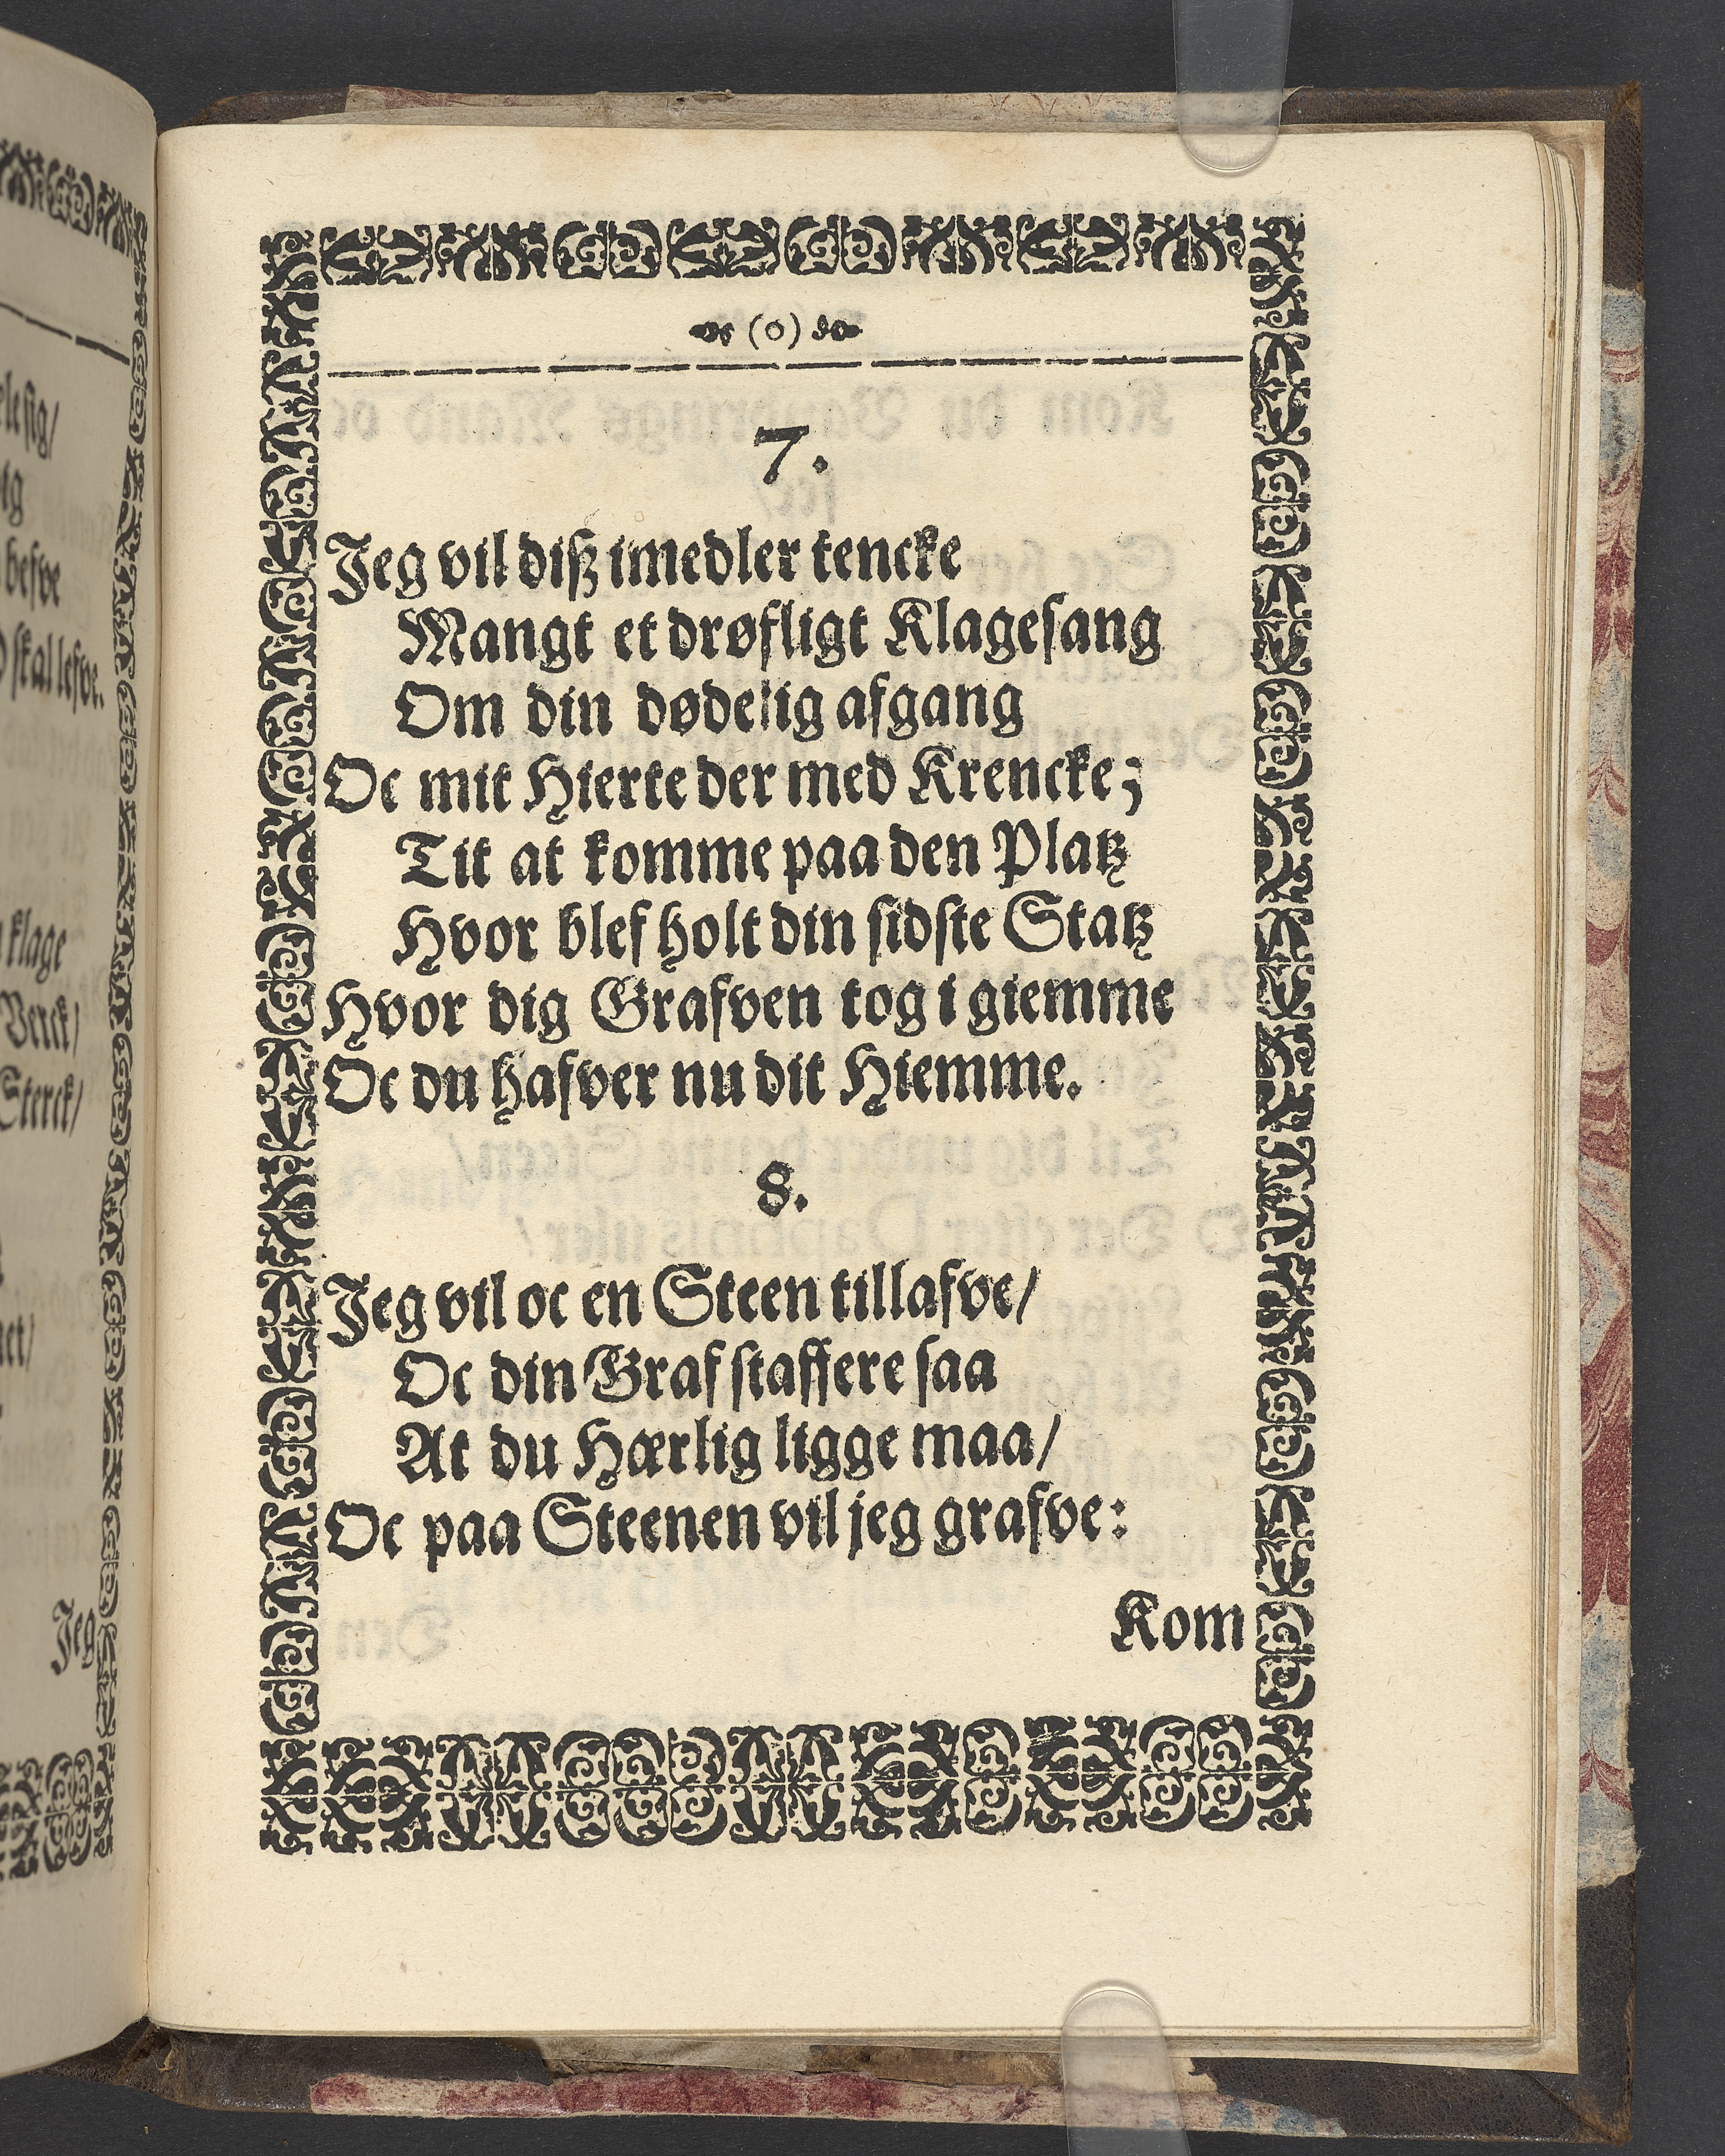 (o)
7.
Jeg vil diß imedler tencke
Mangt et drøfligt Klagesang
Om din dødelig afgang
Oc mit Hierte der med Krencke;
Tit at komme paa den Platz
Hvor blef holt din sidste Statz
Hvor dig Grafven tog i giemme
Oc du hafver nu dit Hiemme.
8.
Jeg vil oc en Steen tillafve/
Oc din Graf staffere saa
At du Hærlig ligge maa/
Oc paa Steenen vil jeg grafve:
Kom
skal lefve.
klage
Verck/
Sterck/
Jeg